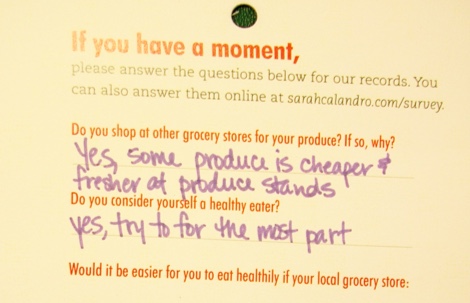 If you have a moment,
please answer the questions below for our records. You
can also answer them online at sarahcalandro.com/survey.
Do you shop at other grocery stores for your produce? If so, why?
Yes, some produce is cheaper &
fresher at produce stands
Do you consider yourself a healthy eater?
yes, try to for the most part
Would it be easier for you to eat healthily if your local grocery store: